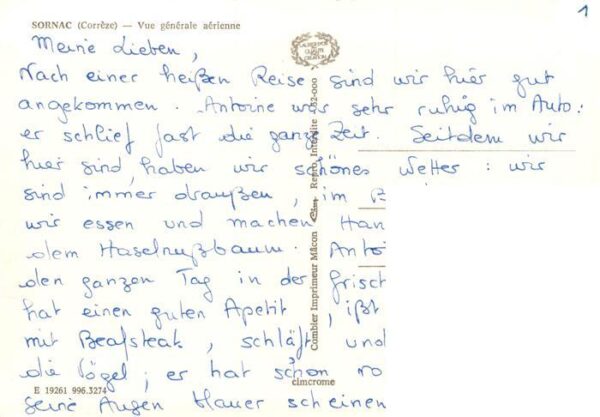 1
SORNAC (Corrèze) — Vue générale aérienne
Meine Lieben,
Nach einer heißen Reise sind wir hier gut
angekommen. Antoine war sehr ruhig im Auto:
er schlief fast die ganze Zeit. Seitdem wir
hier sind, haben wir schönes Wetter: wir
sind immer draußen, im
wir essen und machen Han
dem Haselnußbaum. Antoi
den ganzen Tag in der frisch
hat einen guten Apetit, ißt
mit Beafsteak, schläft und
die Vögel; er hat schon ro
seine Augen blauer scheinen
Combier Imprimeur Mâcon Cim Repro. Interdite
E 19261 996.3274
cimcrome